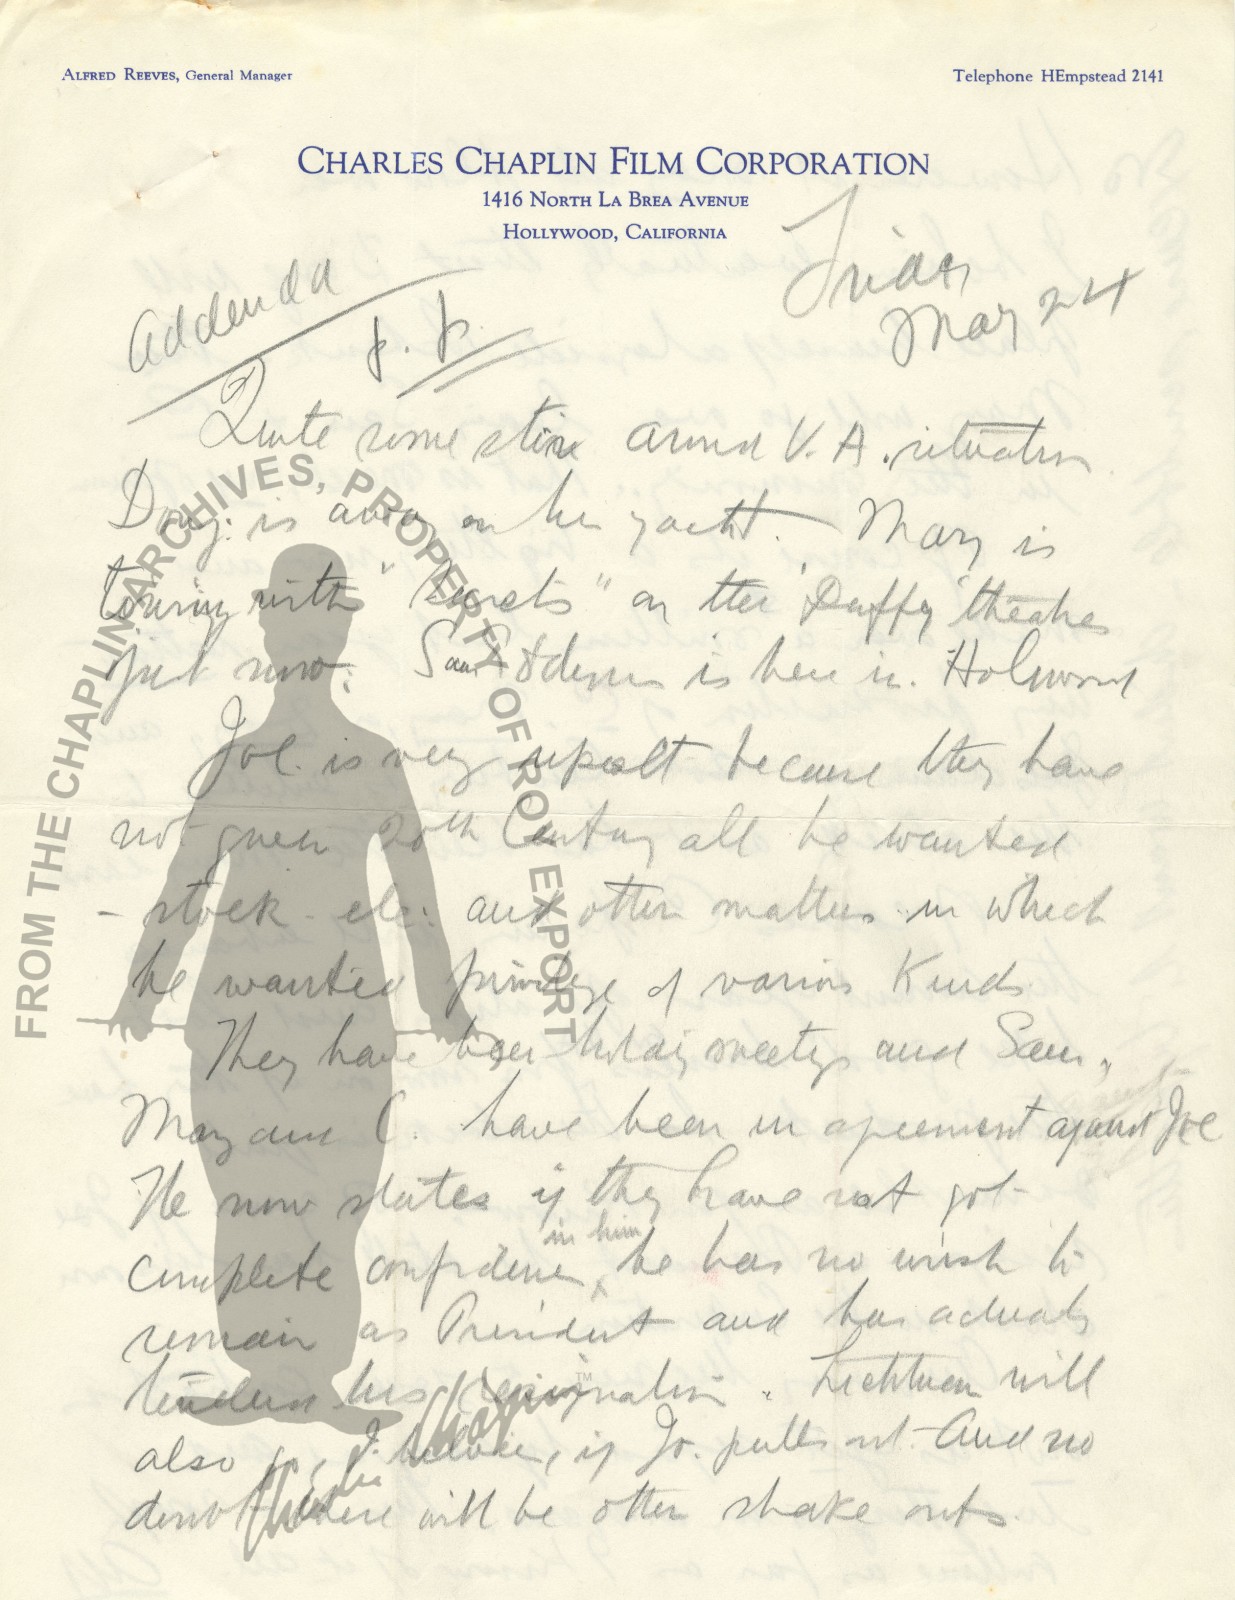 ALFRED REEVES, General Manager
Telephone HEmpstead 2141
CHARLES CHAPLIN FILM CORPORATION
1416 NORTH LA BREA AVENUE
HOLLYWOOD, CALIFORNIA
Friday
May 24
Addenda
Quite some stir around U.A. situation
Doug: is away on his yacht. Mary is
touring with "Coquette" on the "Duffy" theatres
just now. Sam is here in Hollywood
Joe. is very upset because they have
not given 20th Century all he wanted
- stock - etc: and other matters in which
he wanted privilege of various kinds
They have been holding meetings and Sam,
Mary and C. have been in agreement against Joe
He now states if they have not got
complete confidence in him he has no wish to
remain as President and has actually
tendered his resignation. Lichtman will
also go, I believe, if Jo. pulls out. And no
doubt there will be other shake outs.
FROM THE CHAPLIN ARCHIVES, PROPERTY OF ROY EXPORT
TM
Charlie Chaplin